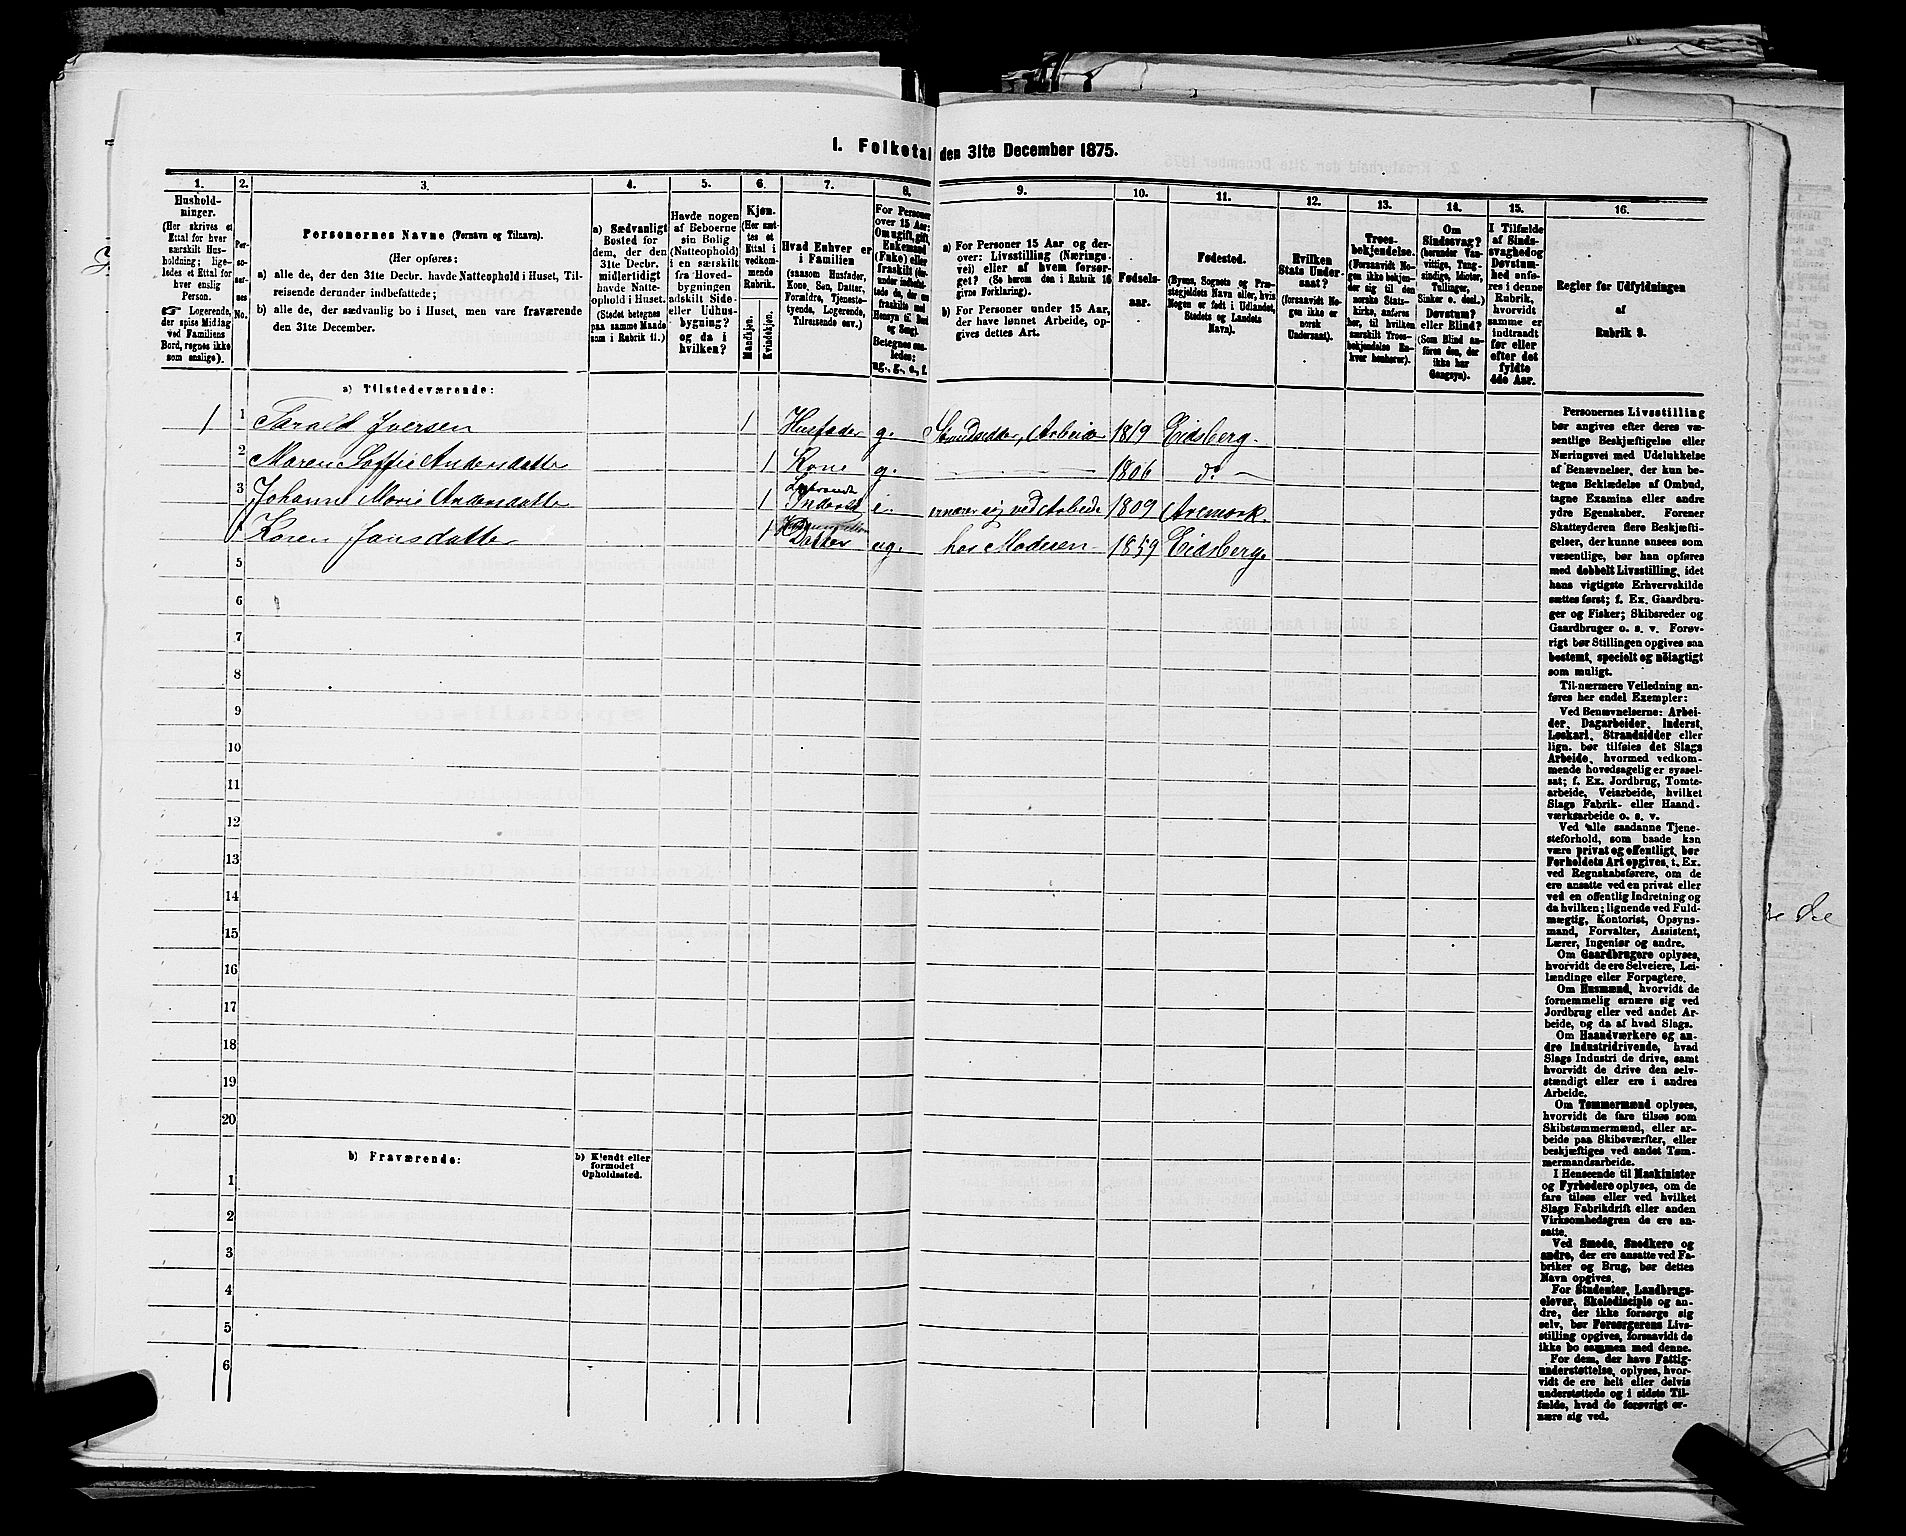 1. Folketal den 31te December 1875.
1. 2. 3. 4. 5. 6. 7. 8. 9. 10. 11. 12. 13. 14. 15. 16.
Hushold-
ninger.
(Her skrives et
Ettal for hver
særskilt Hus-
holdning; lige-
ledes et Ettal for
hver enslig
Person.
☞ Logerende,
der spise Middag
ved Familiens
Bord, regnes ikke
som enslige).
Per-
so-
ner-
nes
No.
Personernes Navne (Fornavn og Tilnavn).
(Her opføres:
a) alle de, der den 31te Decbr. havde Natteophold i Huset, Til-
reisende derunder indbefattede;
b) alle de, der sædvanlig bo i Huset, men vare fraværende
den 31te December.
a) Sædvanligt
Bosted for
dem, der den
31te Decbr.
midlertidigt
havde Natte-
ophold i Huset.
(Stedet betegnes
paa samme Maade
som i Rubrik 11.)
Havde nogen
af Beboerne
sin Bolig
(Natteophold)
i en særskilt
fra Hoved-
bygningen
adskilt Side-
eller Udhus-
bygning?
og da i
hvilken?
Kjøn.
(Her sæt-
tes et
Ettal i
vedkom-
mende
Rubrik.
Mandkjøn.
Kvindekjøn.
Hvad Enhver er
i Familien
(saasom Husfader,
Kone, Søn, Datter,
Forældre, Tjeneste-
tyende, Logerende,
Tilreisende osv.)
For Personer
over 15 Aar:
Om ugift, gift,
Enkemand
(Enke) eller
fraskilt
Betegnes saa-
ledes:
ug., g., e., f.
a) For Personer 15 Aar og der-
over: Livsstilling (Nærings-
vei) eller af hvem forsør-
get? (Se herom den i Rubrik 16
givne Forklaring).
b) For Personer under 15 Aar,
der have lønnet Arbeide, op-
gives dettes Art.
Fødsels-
aar.
Fødested.
(Byens, Sognets og Præ-
stegjeldets Navn eller, hvis
Nogen er født i Udlandet,
Stedets og Landets
Navn).
Hvilken
Stats Under-
saat?
(forsaavidt No-
gen ikke er
norsk
Undersaat).
Troes-
bekjendelse.
(Forsaavidt No-
gen ikke bekjen-
der sig til den
norske Stats-
kirke, anføres
her, til hvilken
særskilt Troes-
bekjendelse En-
hver henhører).
Om
Sindssvag?
(herunder Van-
vittige, Tung-
sindige, Idioter,
Tullinger,
Sinker o. desl.)
Døvstum?
eller Blind?
(Som Blind an-
føres den, der
ikke har
Gangsyn).
I Tilfælde
af Sinds-
svaghed og
Døvstum-
hed anfø-
res i denne
Rubrik,
hvorvidt
samme er
indtraadt
før eller
efter det
fyldte
4de Aar.
Regler for Udfyldningen
af
Rubrik 9.
a) Tilstedeværende:
1 1 Tarald Iversen 1 Husfader g. Strandsidder, Arbeider 1819 Eidsberg.
2 Maren Soffie Andersdatter 1 Kone g. 1806 do
3 Johanne Marie Andersdatter 1 Logerende Inderst e. ernærer sig ved Arbeide 1809 Aremark.
4 Karen Jansdatter 1 Datter ug. hos Moderen 1859 Eidsberg.
5
6
7
8
9
10
11
12
13
14
15
16
17
18
19
20
b) Fraværende:
b) Kjendt eller
formodet
Opholdssted.
1
2
3
4
5
6
Personernes Livsstilling
bør angives efter deres væ-
sentlige Beskjæftigelse eller
Næringsvei med Udelukkelse
af Benævnelser, der kun be-
tegne Beklædelse af Ombud,
tagne Examina eller andre
ydre Egenskaber. Forener
Skatteyderen flere Beskjæfti-
gelser, der kunne ansees som
væsentlige, bør han opføres
med dobbelt Livsstilling, idet
hans vigtigste Erhvervskilde
sættes først; f. Ex. Gaardbru-
ger og Fisker; Skibsreder og
Gaardbruger o. s. v. Forøv-
rigt bør Stillingen opgives saa
bestemt, specielt og nøiagtigt
som muligt.
Til nærmere Veiledning an-
føres her endel Exempler:
Ved Benævnelserne: Arbei-
der, Dagarbeider, Inderst,
Løskarl, Strandsidder eller
lign. bør tilføies det Slags
Arbeide, hvormed vedkom-
mende hovedsagelig er syssel-
sat; f. Ex. Jordbrug, Tomte-
arbeide, Veiarbeide, hvilket
Slags Fabrik- eller Haand-
værksarbeide o. s. v.
Ved alle saadanne Tjene-
steforhold, som baade kan
være privat og offentligt, bør
Forholdets Art opgives, t. Ex.
ved Regnskabsførere, om de
ere ansatte ved en privat eller
ved en offentlig Indretning og
da hvilken; lignende ved Fuld-
mægtig, Kontorist, Opsyns-
mand, Forvalter, Assistent,
Lærer, Ingeniør og andre.
Om Gaardbrugere oplyses,
hvorvidt de ere Selveiere, Lei-
lændinge eller Forpagtere.
Om Husmænd, hvorvidt de
fornemmelig ernære sig ved
Jordbrug eller ved andet Ar-
beide, og da af hvad Slags.
Om Haandværkere og an-
dre Industridrivende, hvad
Slags Industri de drive, samt
hvorvidt de drive den selv-
stændigt eller ere i andres
Arbeide.
Om Tømmermænd oplyses,
hvorvidt de fare tilsøs som
Skibstømmermænd, eller ar-
beide paa Skibsværfter, eller
beskjæftiges ved andet Tøm-
mermandsarbeide.
I Henseende til Maskinister
og Fyrbødere oplyses, om de
fare tilsøs eller ved hvilket
Slags Fabrikdrift eller anden
Virksomhedsgren de ere an-
satte.
Ved Smede, Snedkere og
andre, der ere ansatte ved Fa-
briker og Brug, bør dettes
Navn opgives.
For Studenter, Landbrugs-
elever, Skoledisciple og an-
dre, der ikke forsørge sig
selv, bør Forsørgerens Livs-
stilling opgives, forsaavidt de
ikke bo sammen med denne.
For dem, der have Fattig-
understøttelse, oplyses, hvor-
vidt de ere helt eller delvis
understøttede og i sidste Til-
fælde, hvad de forøvrigt er-
nære sig ved.